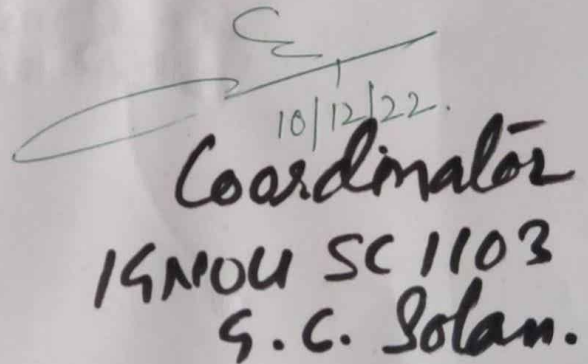 10/12/22.
Coordinator
IGNOU SC 1103
G.C. Solan.